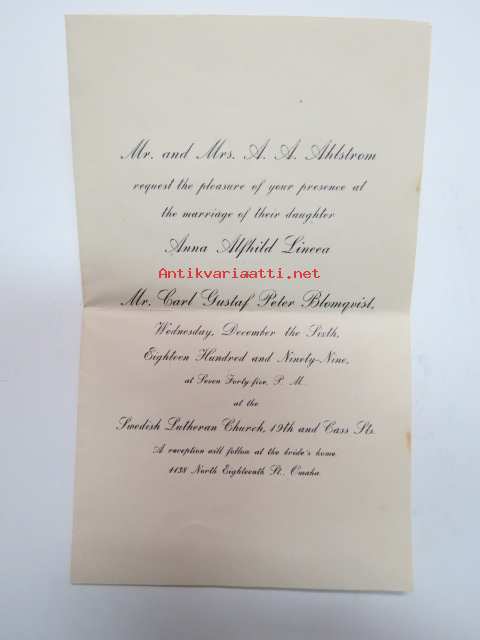 Mr. and Mrs. A. A. Ahlstrom
request the pleasure of your presence at
the marriage of their daughter
Anna Alfhild Lineea
Antikvariaatti.net
Mr. Carl Gustaf Peter Blomqvist,
Wednesday, December the Sixth,
Eighteen Hundred and Ninety-Nine,
at Seven Forty-five, P. M.
at the
Swedish Lutheran Church, 19th and Cass Sts.
A reception will follow at the bride's home
1138 North Eighteenth St., Omaha.